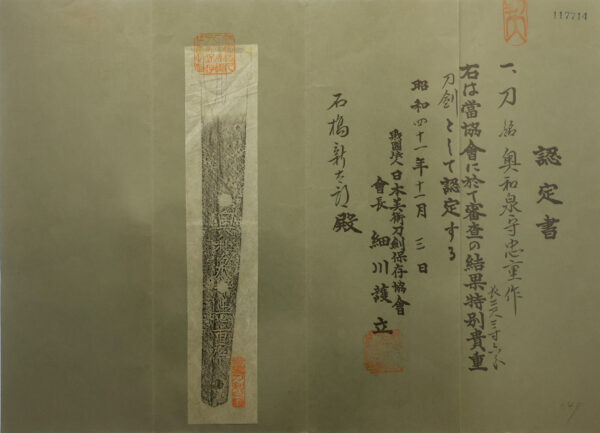 117714
認定書
一、刀 銘 奥和泉守忠重作
長二尺三寸六分
右は當協會に於て審査の結果特別貴重
刀剣として認定する
昭和四十一年十一月三日
財團法人日本美術刀剣保存協會
會長 細川護立
石橋新太郎殿